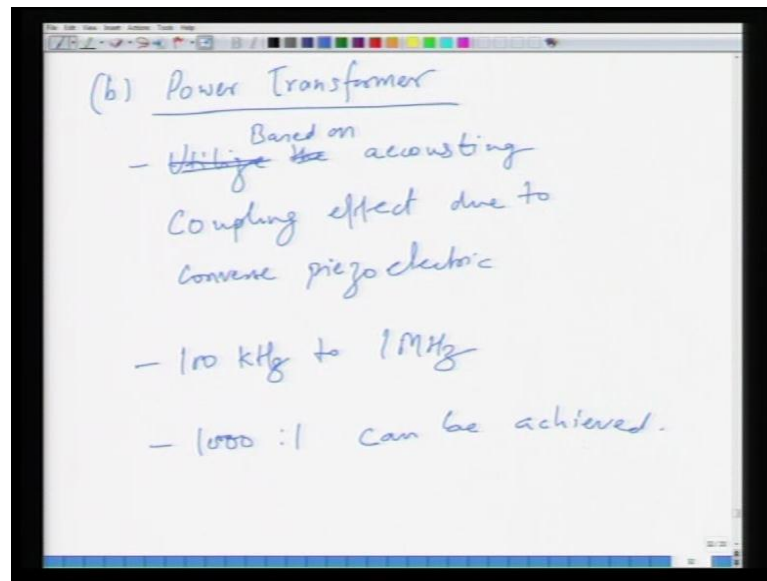 File Edit View Insert Actions Tools Help
(b) Power Transformer
Based on
- Utilize the accousting
Coupling effect due to
Converse piezoelectric
- 100 kHz to 1 MHz
- 1000 : 1 can be achieved.